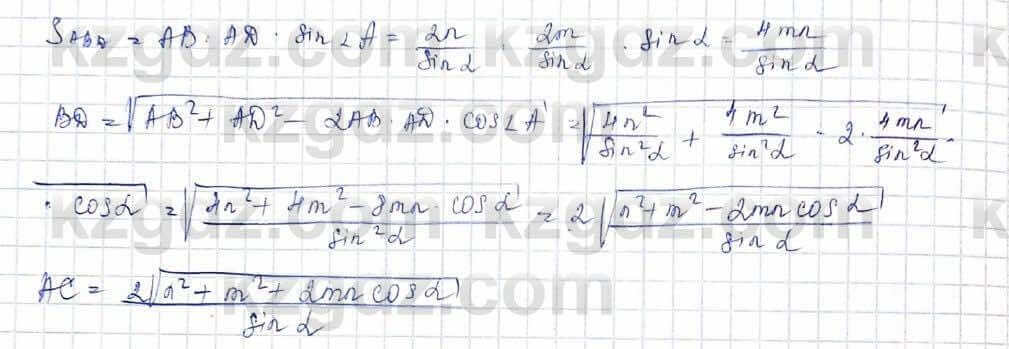 S_ABD = AB · AD · sin∠A = 2n/sinα · 2m/sinα · sinα = 4mn/sinα
BD = √(AB² + AD² - 2AB · AD · cos∠A) = √(4n²/sin²α + 4m²/sin²α - 2 · 4mn/sin²α ·
· cosα) = √((4n² + 4m² - 8mn · cosα)/sin²α) = 2√(n² + m² - 2mn cosα)/sinα
AC = 2√(n² + m² + 2mn cosα)/sinα
kzgdz.com